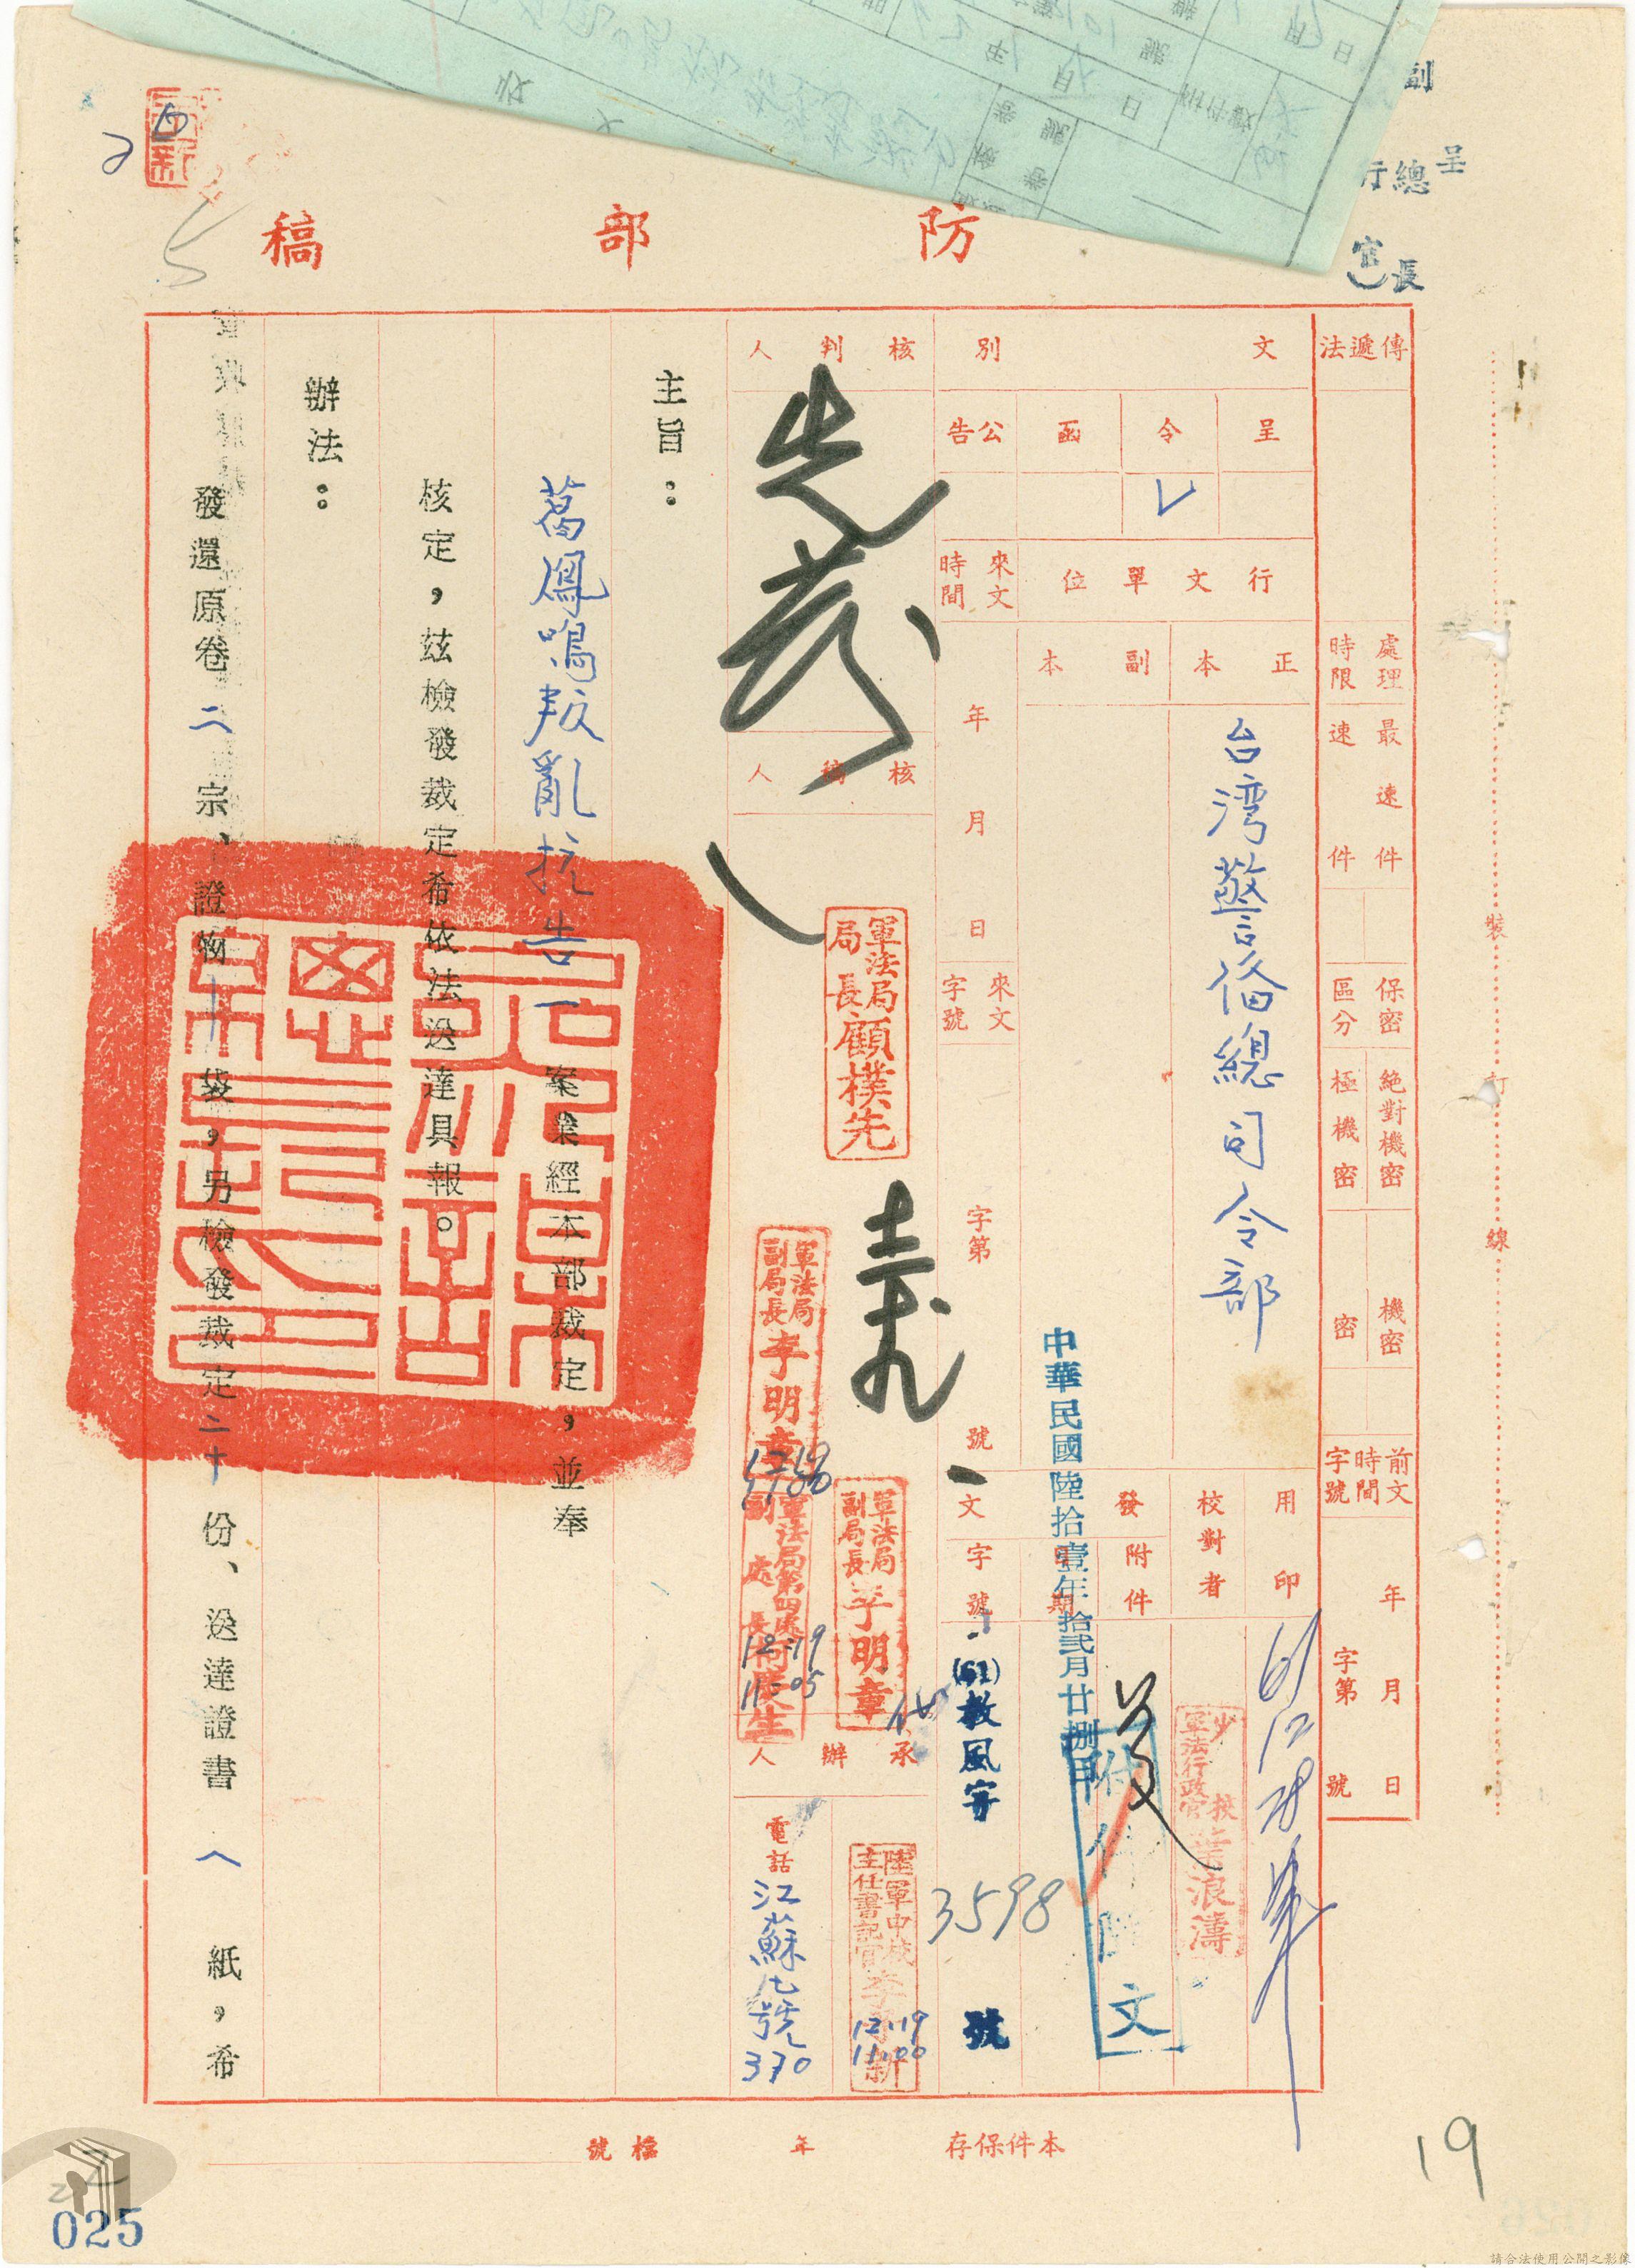 副
呈
總長
行
官
防部稿
傳遞法
處理時限
最速件
速件
保密區分
絕對機密
極機密
機密
密
前文時間字號
年月日
字第號
文別
呈
令
函
公告
V
行文單位
正本
副本
台湾警俻總司令部
來文時間
年月日
來文字號
字第號
用印
61 12 28
校對者
少校軍法行政官葉浪濤
發文
附件
日期
字號
中華民國陸拾壹年拾弍月廿捌日
附件隨文
發
(61)教風字3598號
核判人
先發
軍法局局長顧樸先
核稿人
軍法局副局長李明章
軍法局副局長李明章
代
軍法局第四處副處長
12·19
1105
承辦人
陸軍中校主任書記官
12·19
1100
電話
江蘇
號
370
主旨：
葛鳳鳴叛亂抗告一案業經本部裁定，並奉
核定，茲檢發裁定希依法送達具報。
辦法：
發還原卷二宗，證物十袋，另檢發裁定二十份、送達證書八紙，希
裝訂線
本件保存年
檔號
19
025
請合法使用公開之影像